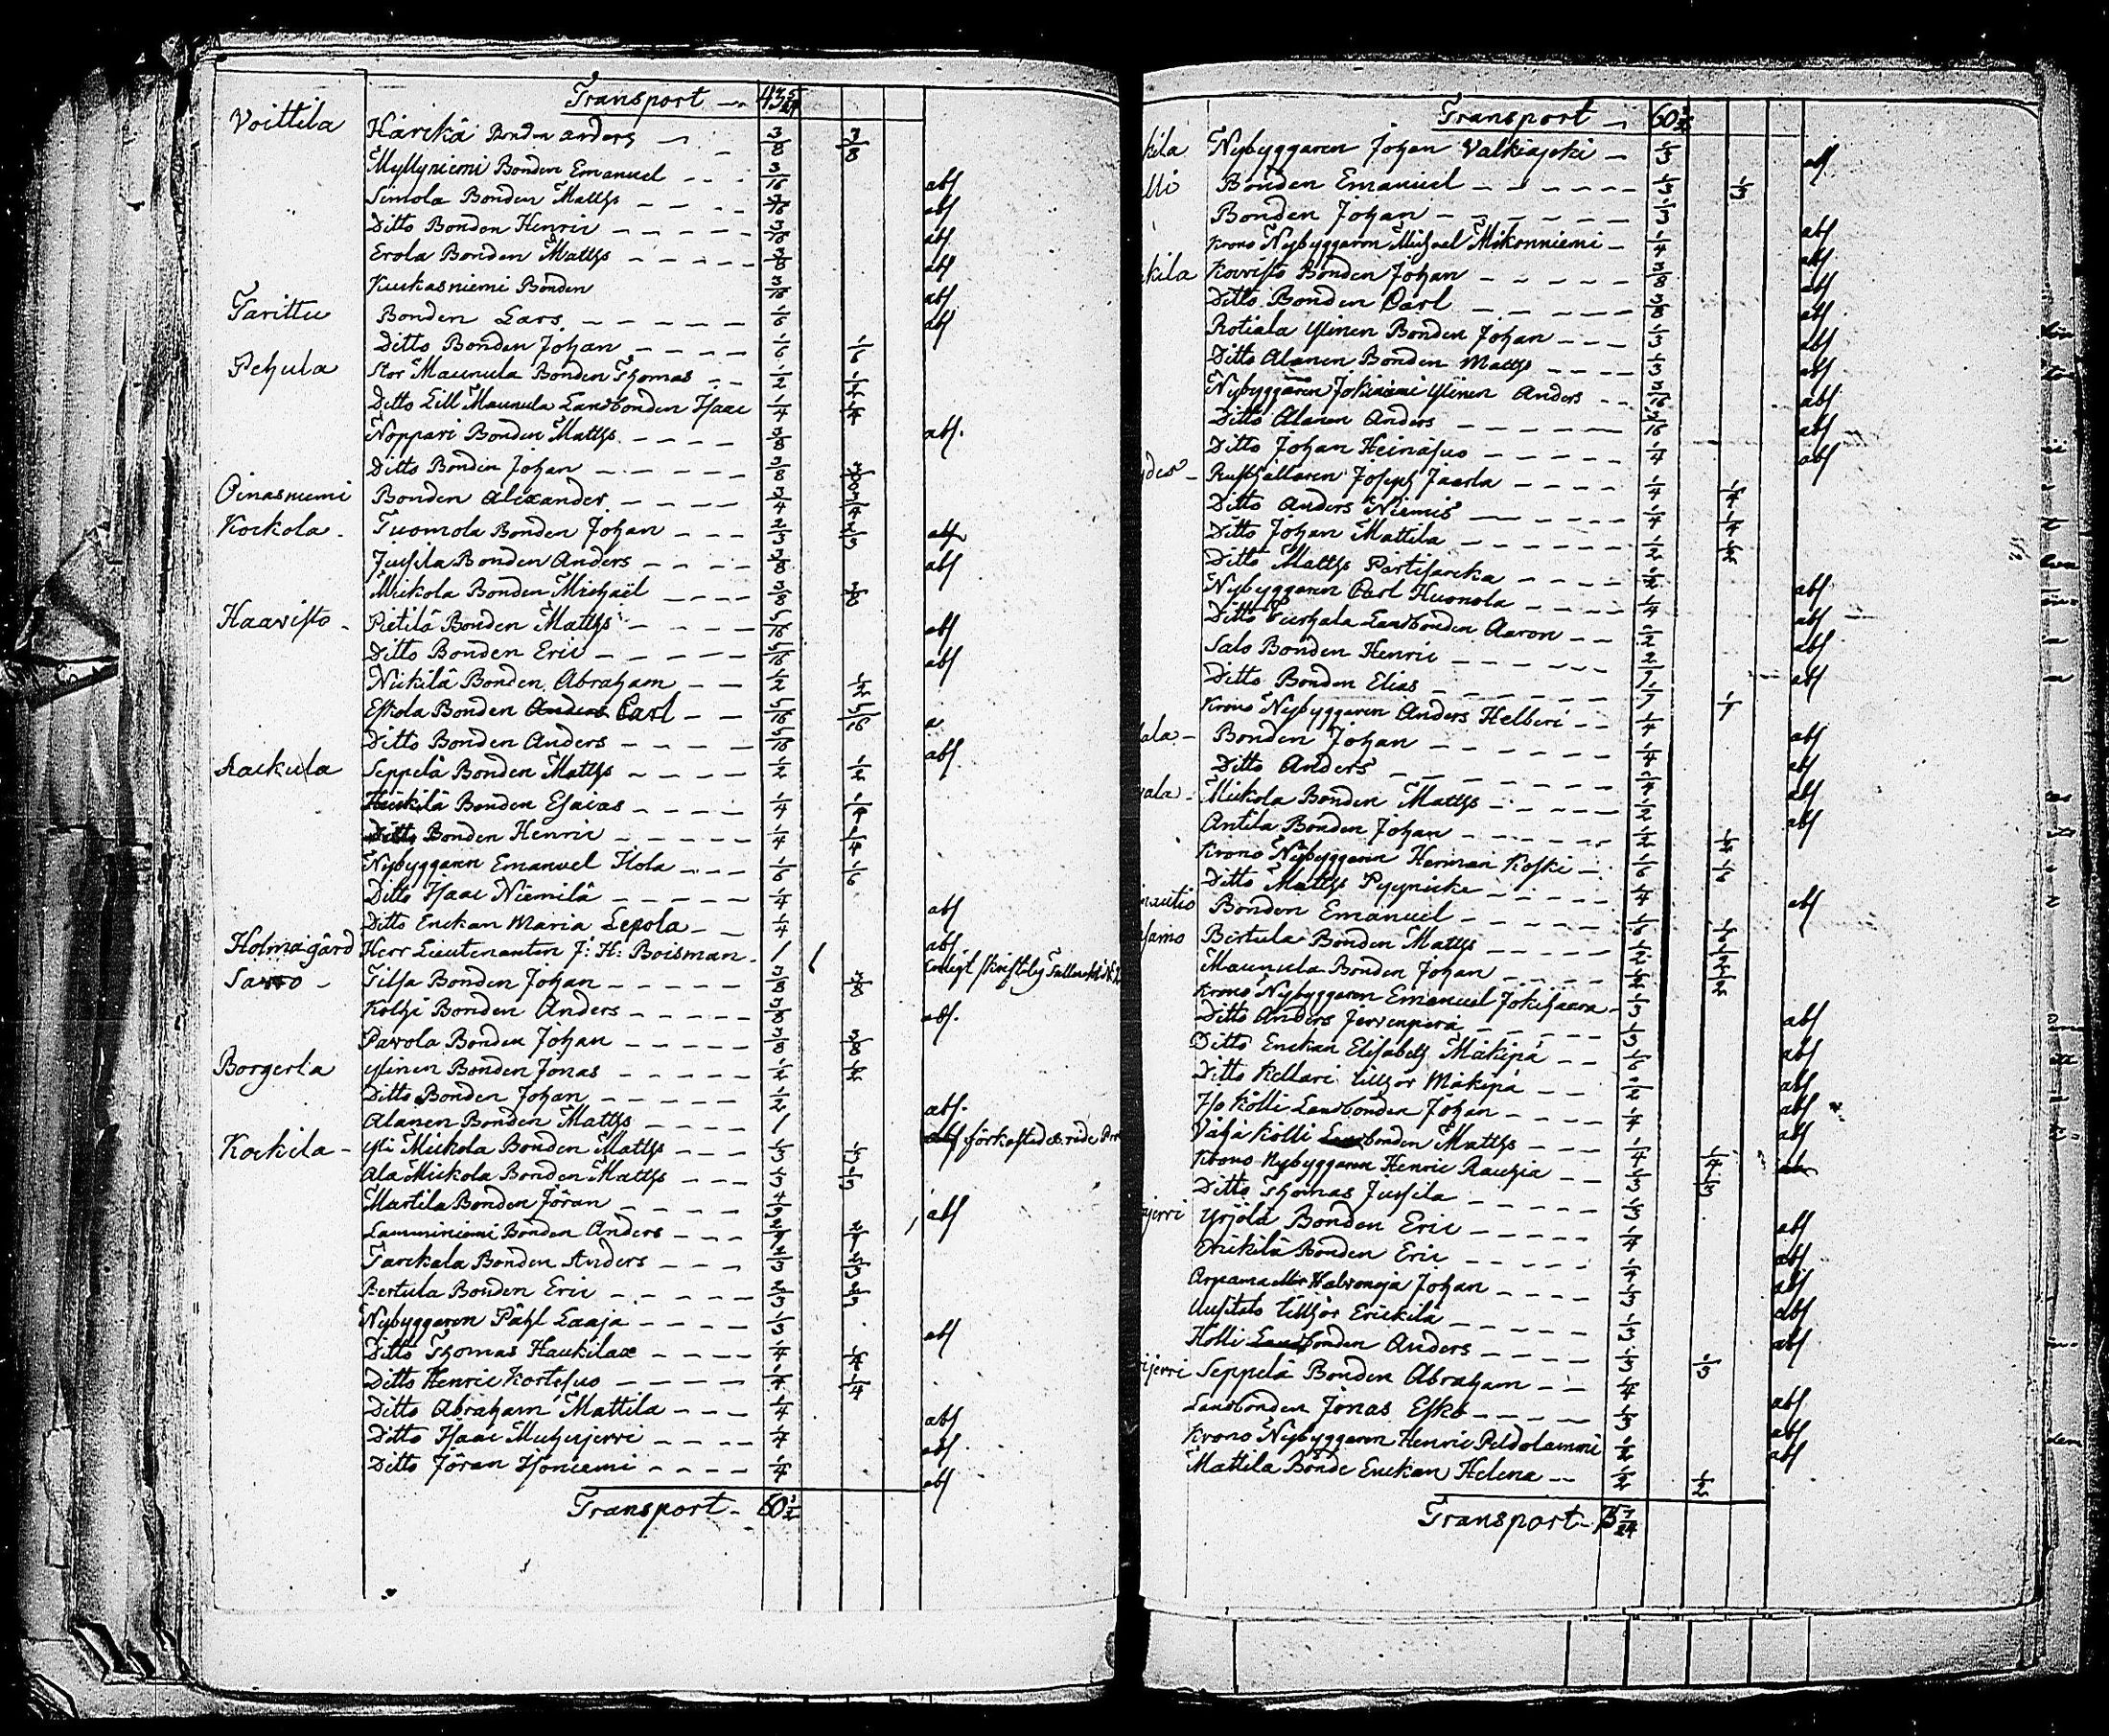 Transport
Voittila Härckä Bonden Anders 3/8 3/8
Myllyniemi Bonden Emanuel 3/16 abs
Simola Bonden Matths 3/16 abs
Ditto Bonden Henric 3/16 abs
Erola Bonden Matths 3/8 abs
Kuukasniemi Bonden 3/16 abs
Tarittu Bonden Lars 1/6 abs
Ditto Bonden Johan 1/6 1/6
Pehula Stor Maunula Bonden Thomas 1/2
Ditto Lill Maunula Landbonden Isaac 1/4
Noppari Bonden Matths 3/8 abs.
Ditto Bonden Johan 3/8 3/8
Oinasniemi Bonden Alexander 3/4 3/4
Kockola Tuomola Bonden Johan 2/3 2/3 abs
Jussila Bonden Anders 3/8 abs
Mickola Bonden Michaël 3/8 3/8
Haavisto Pietilä Bonden Matths 5/16 abs
Ditto Bonden Eric 5/16 abs
Nickilä Bonden Abraham 1/2 1/2
Eskola Bonden Anders Carl 5/16 5/16 a
Ditto Bonden Anders 5/16 abs.
Seppelä Bonden Matths 1/2 1/2
Heickilä Bonden Esaias 1/4 1/4
Ditto Bonden Henric 1/4 1/4
Nybyggaren Emanuel Ilola 1/6 1/6
Ditto Isaac Niemilä 1/4 abs
Ditto Enckan Maria Lepola 1/4 abs.
Holmagård Herr Lieutenanten J: H: Boisman 1 1 enligt skriftelig
Savo Tilsa Bonden Johan 3/8 3/8
Kolhi Bonden Anders 3/8 abs.
Pavola Bonden Johan 3/8 3/8
Borgerla Ylinen Bonden Jonas 1/2 1/2
Ditto Bonden Johan 1/2 abs.
Alanen Bonden Matths 1 abs
Kockila Yli Mickola Bonden Matths 1/3 1/3
Ala Mickola Bonden Matths 1/3 1/3
Martila Bonden Jöran abs
Lamminiemi Bonden Anders
Tarckala Bonden Anders 2/3 2/3
Bertula Bonden Eric 2/3 2/3
Nybyggaren Påhl Laaja 1/3 abs
Ditto Thomas Haukilax 1/4 1/4
Ditto Henric Kortesuo 1/4 1/4
Ditto Abraham Mattila 1/4 abs
Ditto Isaac 1/4 abs.
Ditto Jöran Isoniemi 1/4 abs
Transport 60 1/2
Transport 60 1/2
kila Nybyggaren Johan Valkiajoki 1/3 abs
lli Bonden Emanuel 1/3 1/3
Bonden Johan 1/3 abs
Krono Nybyggaren Michael Mikonniemi 1/4 abs
kila Koivisto Bonden Johan 3/8 abs
Ditto Bonden Carl 3/8 abs
Rotiala Ylinen Bonden Johan 1/3 abs
Ditto Alanen Bonden Matths 1/3 abs
Nybyggaren Jokiniemi Ylinen Anders 3/16 abs
Ditto Alanen Anders 3/16 abs
Ditto Johan Heinäsuo 1/4 abs
Rusthållaren Joseph Jaarla 1/4 1/4
Ditto Anders Niemis 1/4 1/4
Ditto Johan Mattila 1/2 1/2
Ditto Matths 1/2 abs
Nybyggaren Carl Huonola 1/4 abs
Ditto Landbonden Aaron 1/2 abs
Salo Bonden Henric 2/7 abs
Ditto Bonden Elias 1/7 1/7
Krono Nybyggaren Anders Helberi 1/4 abs
ala Bonden Johan 1/4 abs
Ditto Anders 1/4 abs
vala Mickola Bonden Matths 1/2 abs
Antila Bonden Johan 1/2 1/2
Krono Nybyggaren Herman Koski 1/6 1/6
Ditto Matths 1/4 abs
nautio Bonden Emanuel 1/6 1/6
samo Bertula Bonden Matths 1/2 1/2
Maunula Bonden Johan 1/2 1/2
Krono Nybyggaren Emanuel Jokisaara 1/3 abs
Ditto Anders Jervenperä 1/3 abs
Ditto Enckan Elisabeth Mäkipä 1/6 abs
Ditto Kellari tillhör Mäkipä 1/2 abs
Iso Kölli Landbonden Johan 1/4 abs
Vähä Kölli Landbonden Matths 1/4 1/4
Krono Nybyggaren Henric Rauhia 1/3 1/3
Ditto Thomas Jussila 1/3 abs
jerri Yrjölä Bonden Eric 1/4 abs
Erickilä Bonden Eric 1/4 abs
Johan 1/3 abs
tillhör Erickilä 1/3 abs
Hölli Landbonden Anders 1/3 1/3
ijerri Seppelä Bonden Abraham 1/4 abs
Landbonden Jonas Esko 1/3 abs
Krono Nybyggaren Henric Peldolammi 1/2 abs
Mattila Bonde Enckan Helena 1/2 1/2
Transport 75 7/24